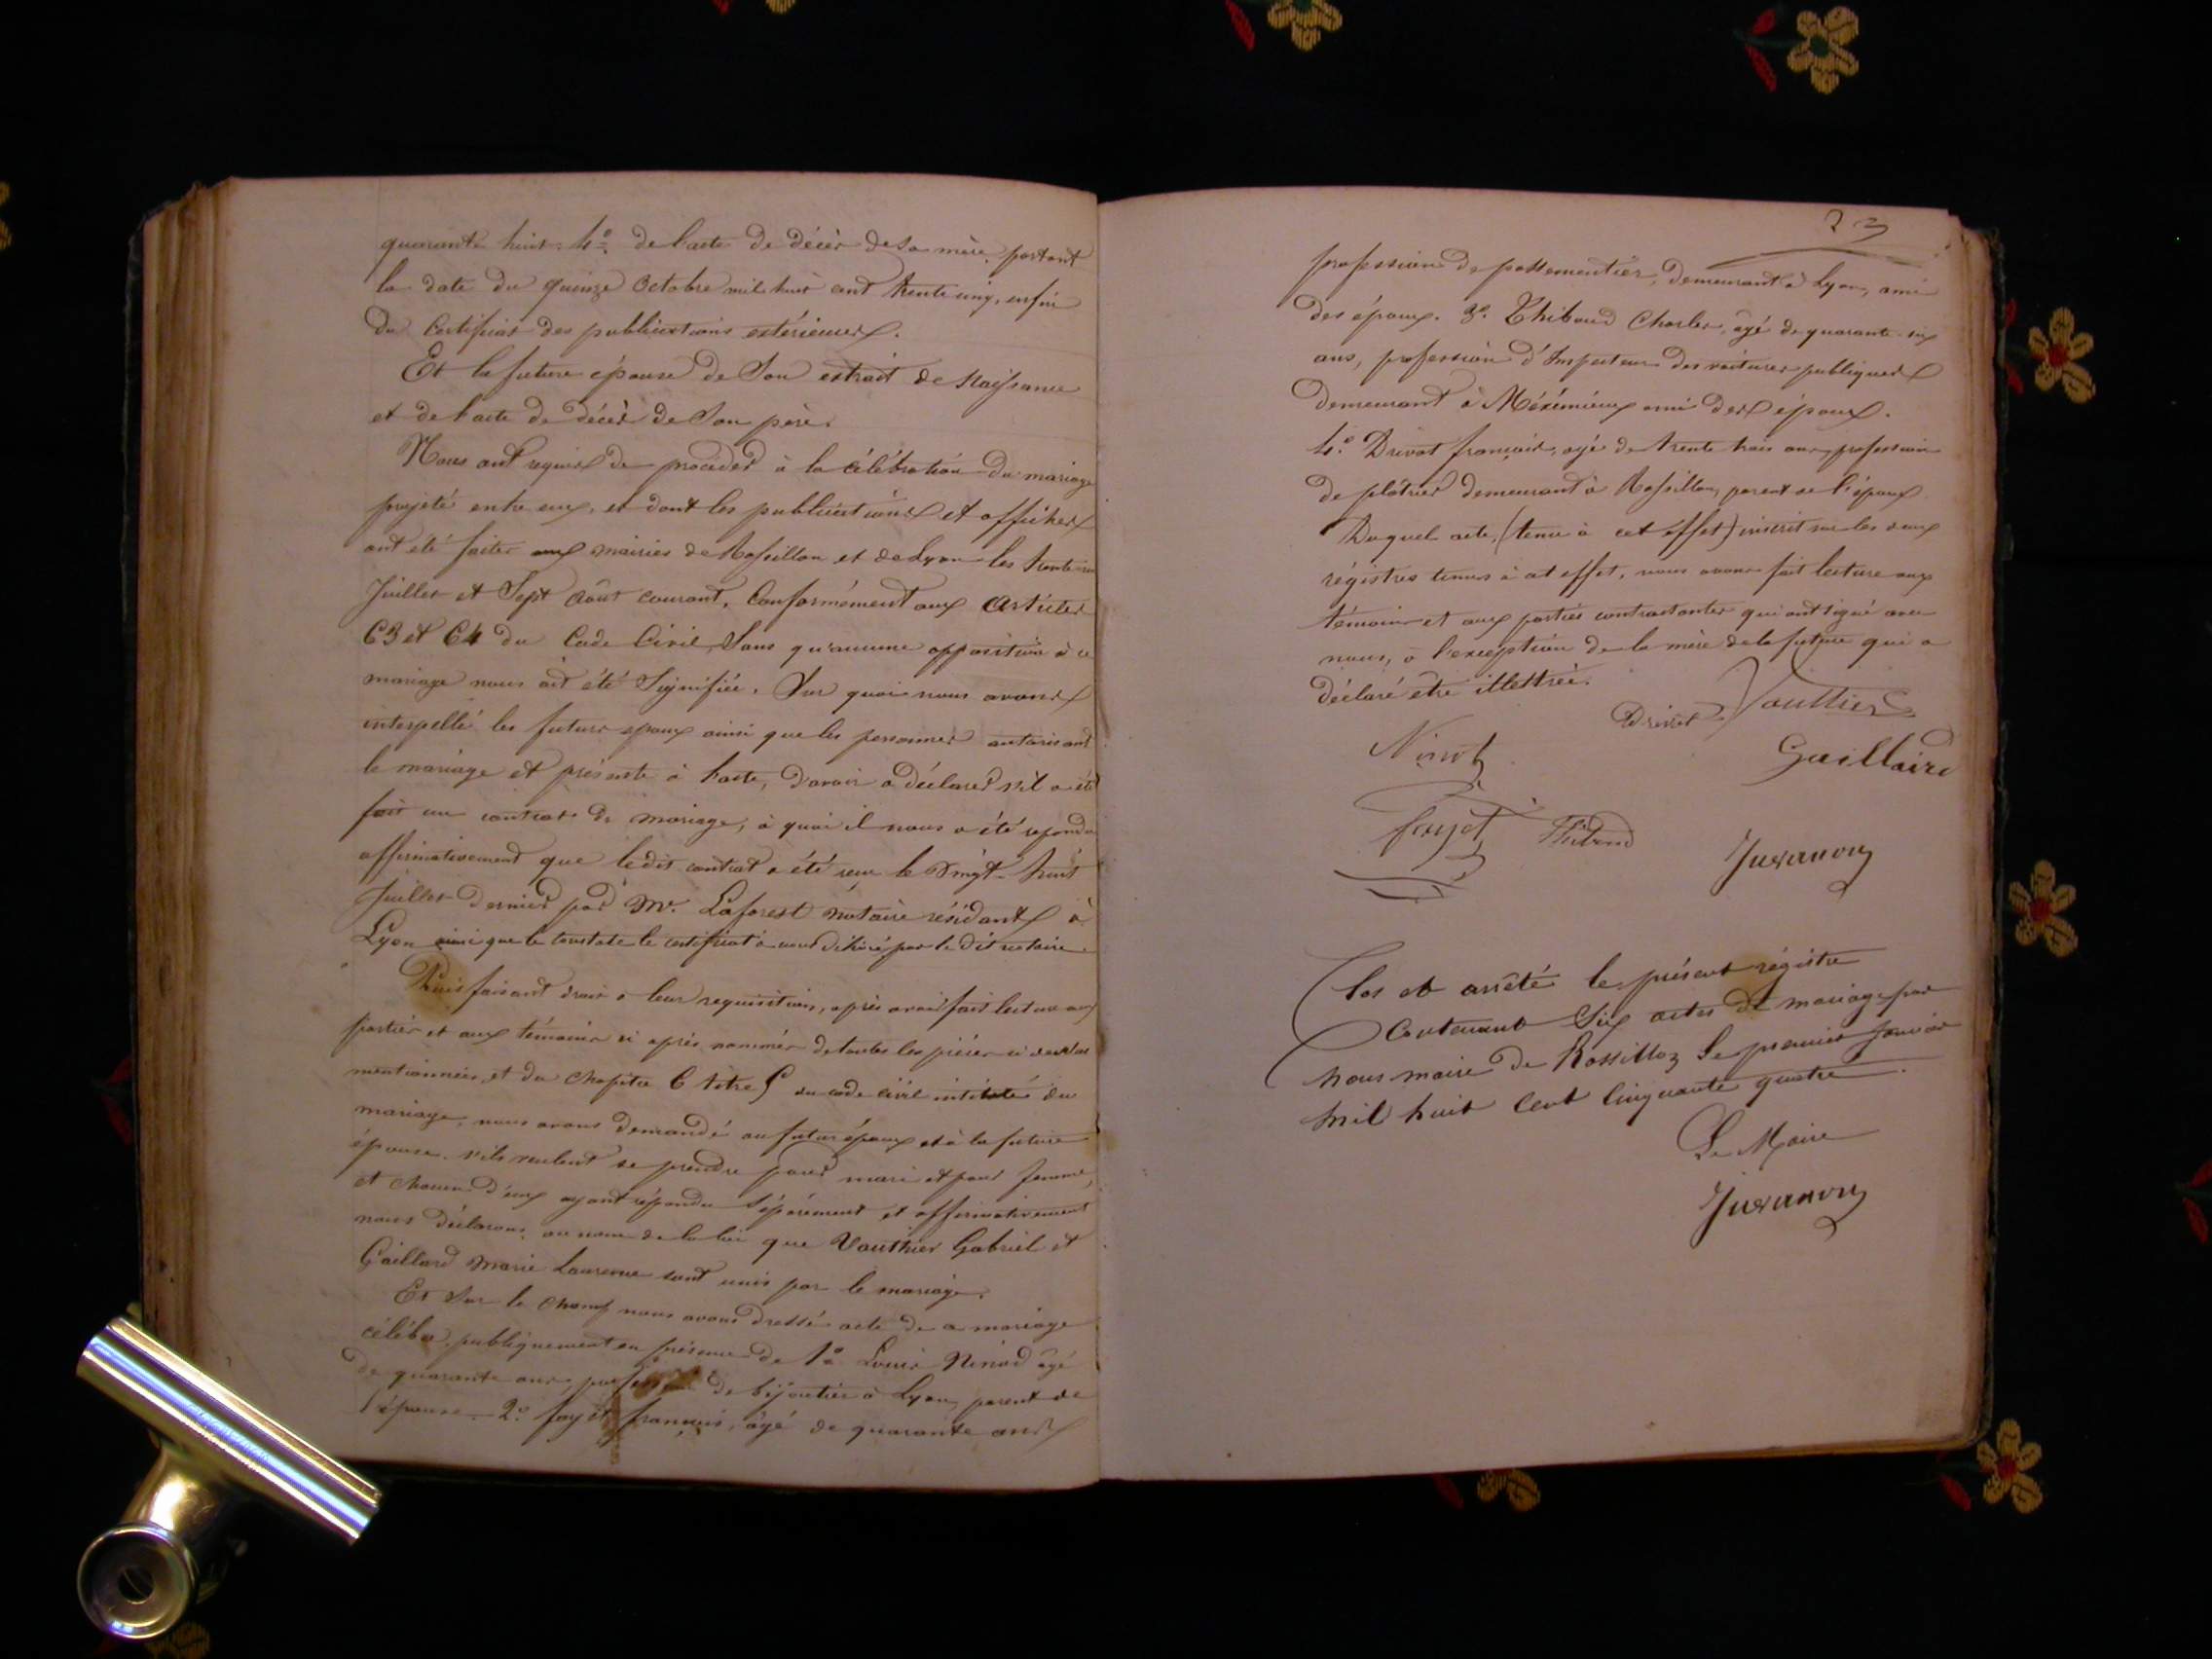 quarante huit. 4° de l'acte de décès de sa mère portant
la date du quinze Octobre mil huit cent trente cinq, enfin
du Certificat des publications extérieures.
Et la future épouse de Son extrait de Naissance
et de l'acte de décès de Son père.
Nous ont requis de procéder à la célébration du mariage
projeté entre eux, et dont les publications et affiches
ont été faites aux mairies de Rossillon et de Lyon les trente un
Juillet et Sept Août courant, Conformément aux Articles
63 et 64 du Code Civil, Sans qu'aucune opposition à ce
mariage nous ait été Signifiée. Sur quoi nous avons
interpellé les futurs epoux ainsi que les personnes autorisant
le mariage et présente à l'acte, d'avoir à déclarer s'il a été
fait un contrat de mariage, à quoi il nous a été repondu
affirmativement que ledit contrat a été reçu le Vingt-huit
Juillet dernier par Mr. Laforest notaire résidant à
Lyon ainsi que le constate le certificat à nous délivré par le dit notaire.
Puis faisant droit à leur requisition, après avoir fait lecture aux
parties et aux témoins ci après nommés de toutes les pièces ci dessus
mentionnées et du Chapitre 6 titre 5 du code civil intitulé du
mariage, nous avons demandé au futur époux et à la future
épouse s'ils veulent se prendre pour mari et pour femme,
et chacun d'eux ayant répondu Séparément et affirmativement
nous déclarons au nom de la loi que Vauthier Gabriel et
Gaillard Marie Laurence sont unis par le mariage.
Et Sur le champ nous avons dressé acte de ce mariage
célébré publiquement en présence de 1° Louis Ninod âgé
de quarante ans, profession de bijoutier à Lyon, parent de
l'épouse. 2° fayet françois, âgé de quarante ans
23
profession de passementier, demeurant à Lyon, ami
des époux. 3°. Thibaud Charles, âgé de quarante six
ans, profession d'Inspecteur des voitures publiques
demeurant à Méximieux ami des époux.
4°. Drivet françois, agé de trente trois ans profession
de plâtrier demeurant à Rossillon, parent de l'époux
Duquel acte, (tenu à cet effet) inscrit sur les deux
régistres tenus à cet effet, nous avons fait lecture aux
témoins et aux parties contractantes qui ont signé avec
nous, à l'exception de la mère de la future qui a
déclaré être illettrée.
Drivet Vauthier
Ninod Gaillard
fayet Thibaud Juvanon
Clos et arrêté le présent régistre
Contenant Six actes de mariage par
nous maire de Rossillon le premier Janvier
mil huit cent cinquante quatre.
Le Maire
Juvanon